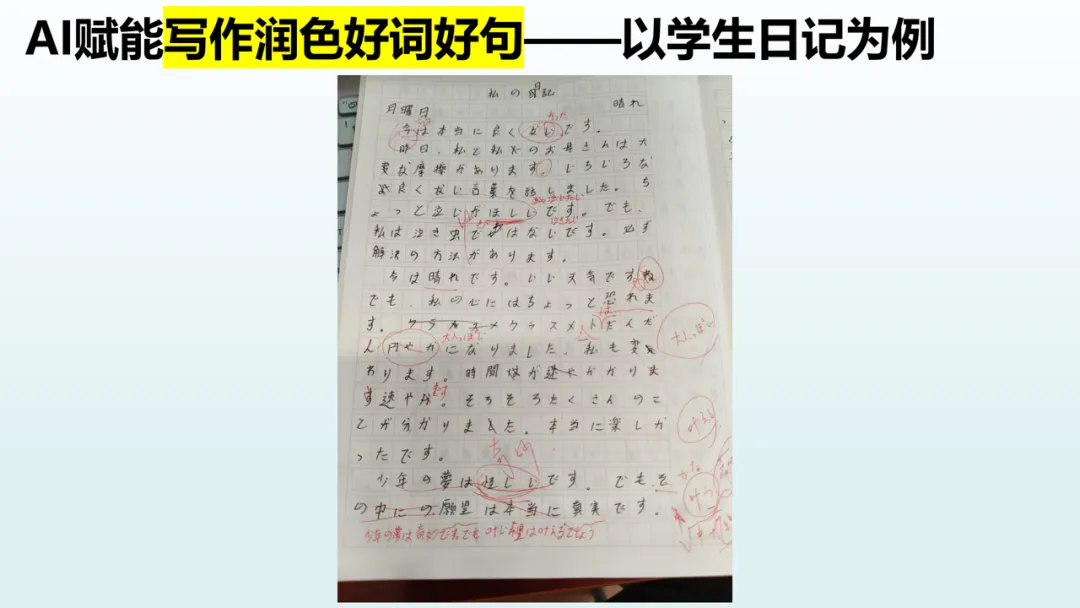 AI赋能写作润色好词好句——以学生日记为例
私の日記
月曜日 晴れ
今は本当に良くないです。
昨日、私と私のお母さんは大
変な摩擦があります。いろいろな
良くない言葉を話しました。ち
ょっと泣いがほしいです。でも、
私は泣き虫ではないです。必ず
解決の方法があります。
今は晴れです。いい天気です
でも、私の心にはちょっと恐れま
す。クラスメクラスメトだんだ
ん円やかになりました、私も変
わります。時間がかかりま
す速やか。そろそろたくさんのこ
とが分かりました。本当に楽しか
ったです。
少年の夢は怪しいです。でも、そ
の中にの願望は本当に真実です。
少年の夢は奇妙ですでも
大人っぽい
大人っぽい
叶える
叶う